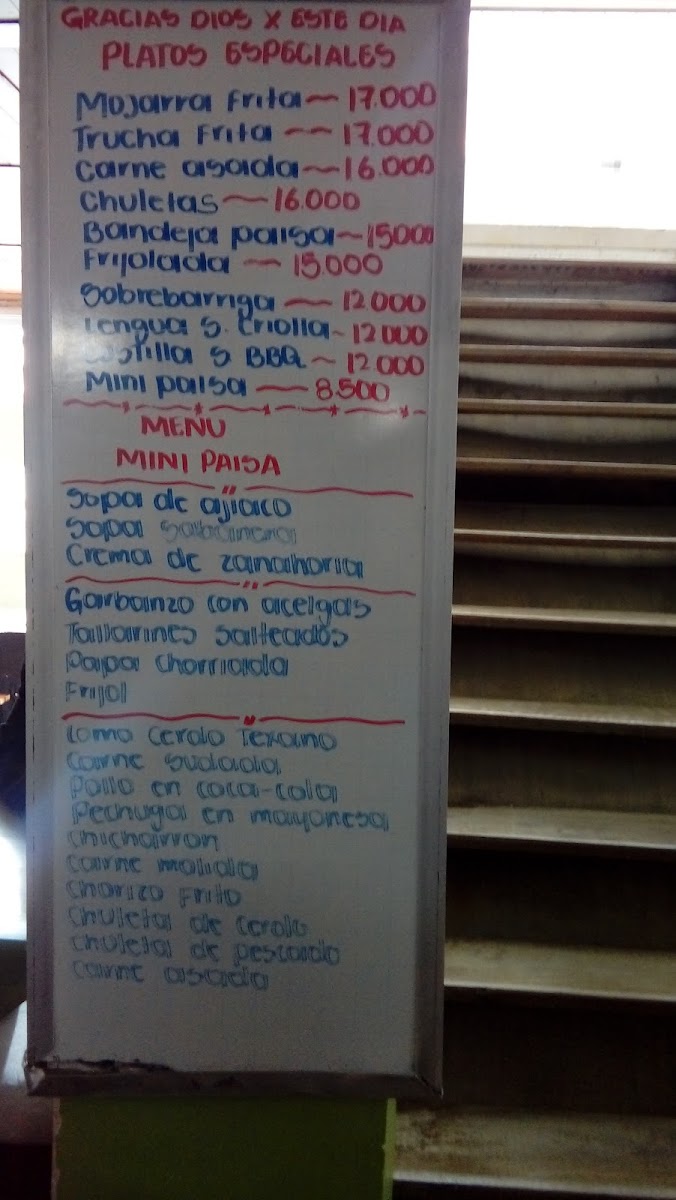 GRACIAS DIOS X ESTE DIA
PLATOS ESPECIALES
Mojarra Frita 17.000
Trucha Frita 17.000
Carne asada 16.000
Chuletas 16.000
Bandeja paisa 15000
Frijolada 15.000
Sobrebarriga 12000
Lengua S. Criolla 12000
Costilla S BBQ 12.000
Mini paisa 8.500
MENU
MINI PAISA
Sopa de ajiaco
Sopa Sabanera
Crema de zanahoria
Garbanzo con acelgas
Tallarines Salteados
Papa chorriada
Frijol
Lomo Cerdo Texano
Carne Sudada
Pollo en coca-cola
Pechuga en mayonesa
Chicharron
Carne molida
Chorizo Frito
Chuleta de cerdo
Chuleta de pescado
Carne asada